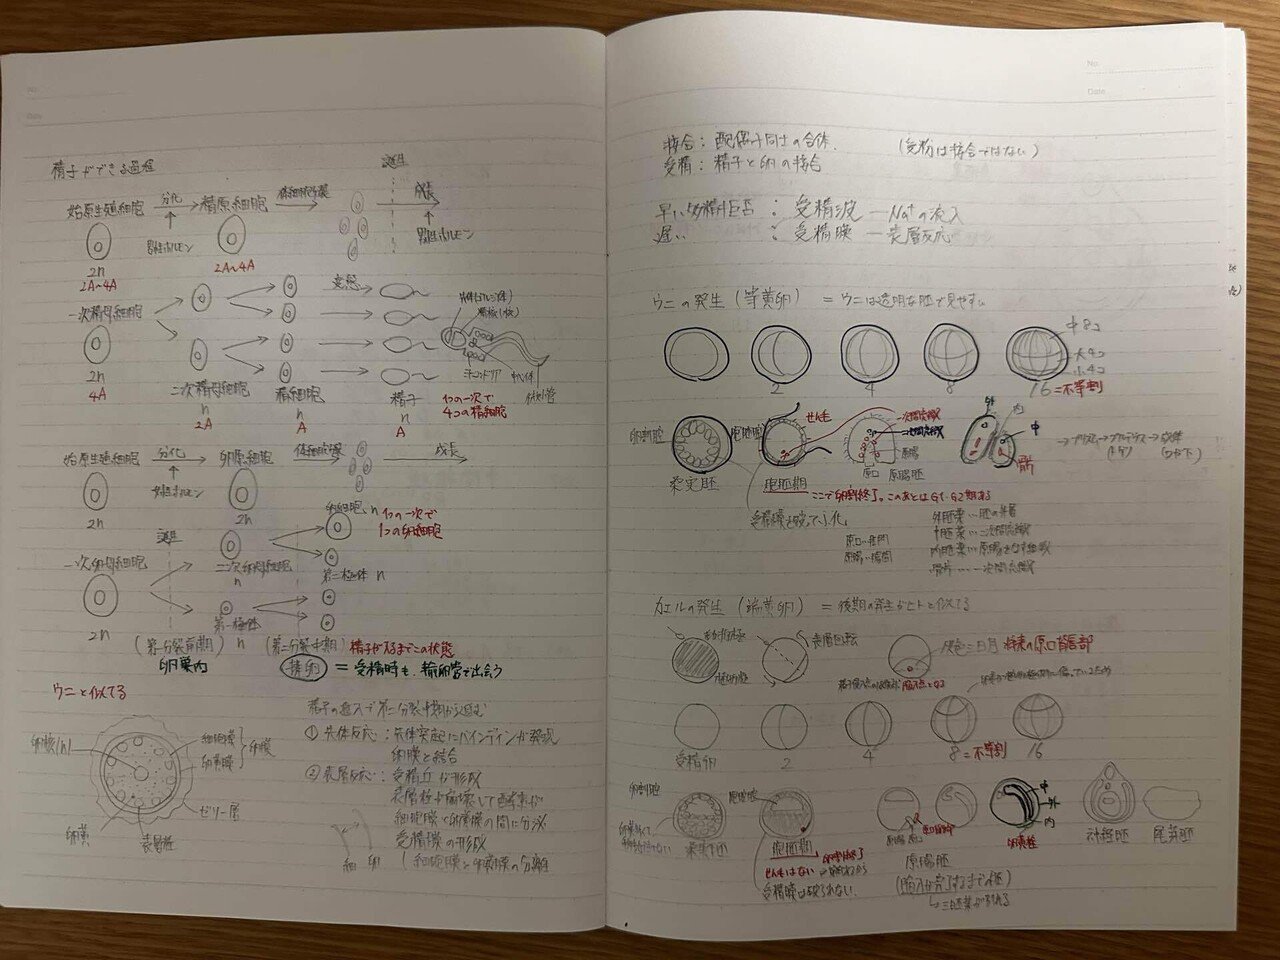 精子ができる過程
誕生
始原生殖細胞 分化 精原細胞 体細胞分裂 成長
雄性ホルモン 雄性ホルモン
2n
2A~4A 2A~4A
変態
一次精母細胞
先体(ゴルジ体)
精核(核)
ミトコンドリア
中心体
微小管
2n
4A
二次精母細胞 精細胞 精子
n n n
2A A A
1つの一次で
4つの精細胞
始原生殖細胞 分化 卵原細胞 体細胞分裂 成長
雌性ホルモン
2n 2n
卵細胞 n
1つの一次で
1つの卵細胞
誕生
一次卵母細胞 二次卵母細胞
n
第二極体 n
2n
第一極体
n
(第一分裂前期) (第二分裂中期) 精子が入るまでこの状態
卵巣内 排卵 = 受精時も、輸卵管で出会う
ウニと似てる
精子の進入で第二分裂中期から進む
① 先体反応:先体突起にバインディンが発現
卵膜と結合
② 表層反応:受精丘が形成
表層粒が崩壊して内容物が
細胞膜と卵黄膜の間に分泌
受精膜の形成
(細胞膜と卵黄膜の分離
卵核(n)
細胞膜
卵黄膜
卵膜
ゼリー層
卵黄
表層粒
細 卵
No.
Date
接合:配偶子同士の合体. (受粉は接合ではない)
受精:精子と卵の接合
早い多精拒否:受精波―Na⁺の流入
遅い :受精膜―表層反応
ウニの発生(等黄卵) =ウニは透明な胚で見やすい
中8コ
大4コ
小4コ
2 4 8 16=不等割
卵割腔 胞胚腔 せん毛
一次間充織
二次間充織
原腸
原口 原腸胚
外 内
中
骨片
→プリズム→プルテウス→成体
桑実胚 胞胚期
ここで卵割終了。このあとはG1・G2期ある
受精膜を破ってふ化
原口…肛門
原腸…腸間
外胚葉…胚の外層
中胚葉…二次間充織
内胚葉…原腸をなす細胞
骨片……一次間充織
カエルの発生(端黄卵) =後期の発生がヒトと似てる
動物極
植物極
表層回転
灰色三日月 将来の原口背唇部
受精卵 2 4 8=不等割 16
卵割腔 胞胚腔
桑実胚 胞胚期
せん毛はない
受精膜は破られない.
原腸胚
中
外
内
卵黄栓
神経胚 尾芽胚